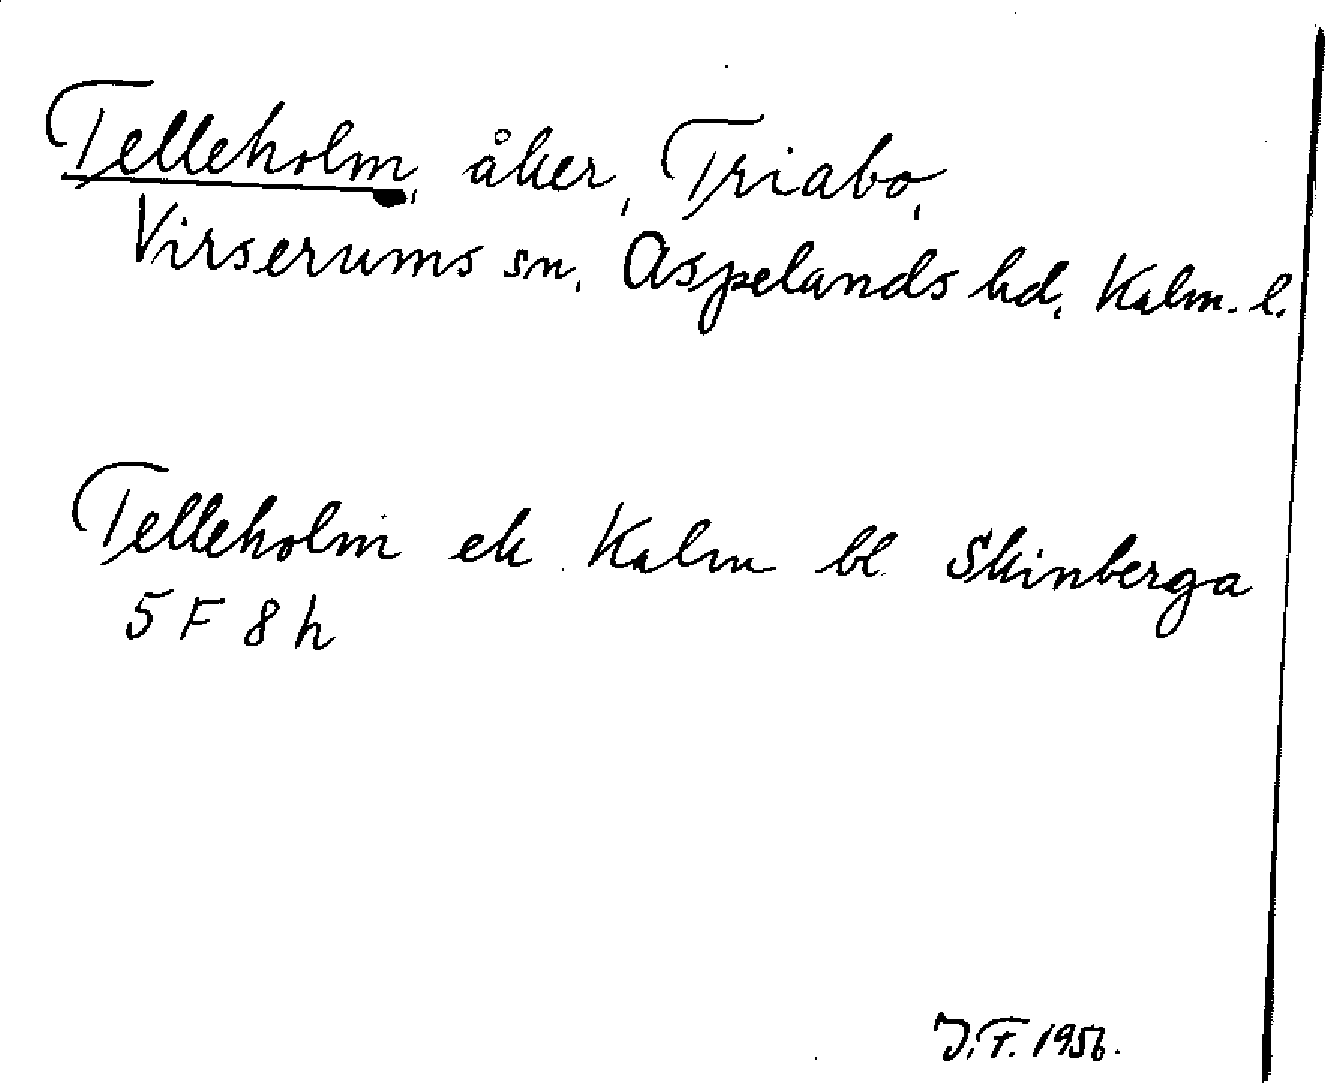 Telleholm, åker, Triabo,
Virserums sn, Aspelands hd, Kalm. l.
Telleholm ek Kalm bl Skinberga
5 F 8 h
J.F. 1956.